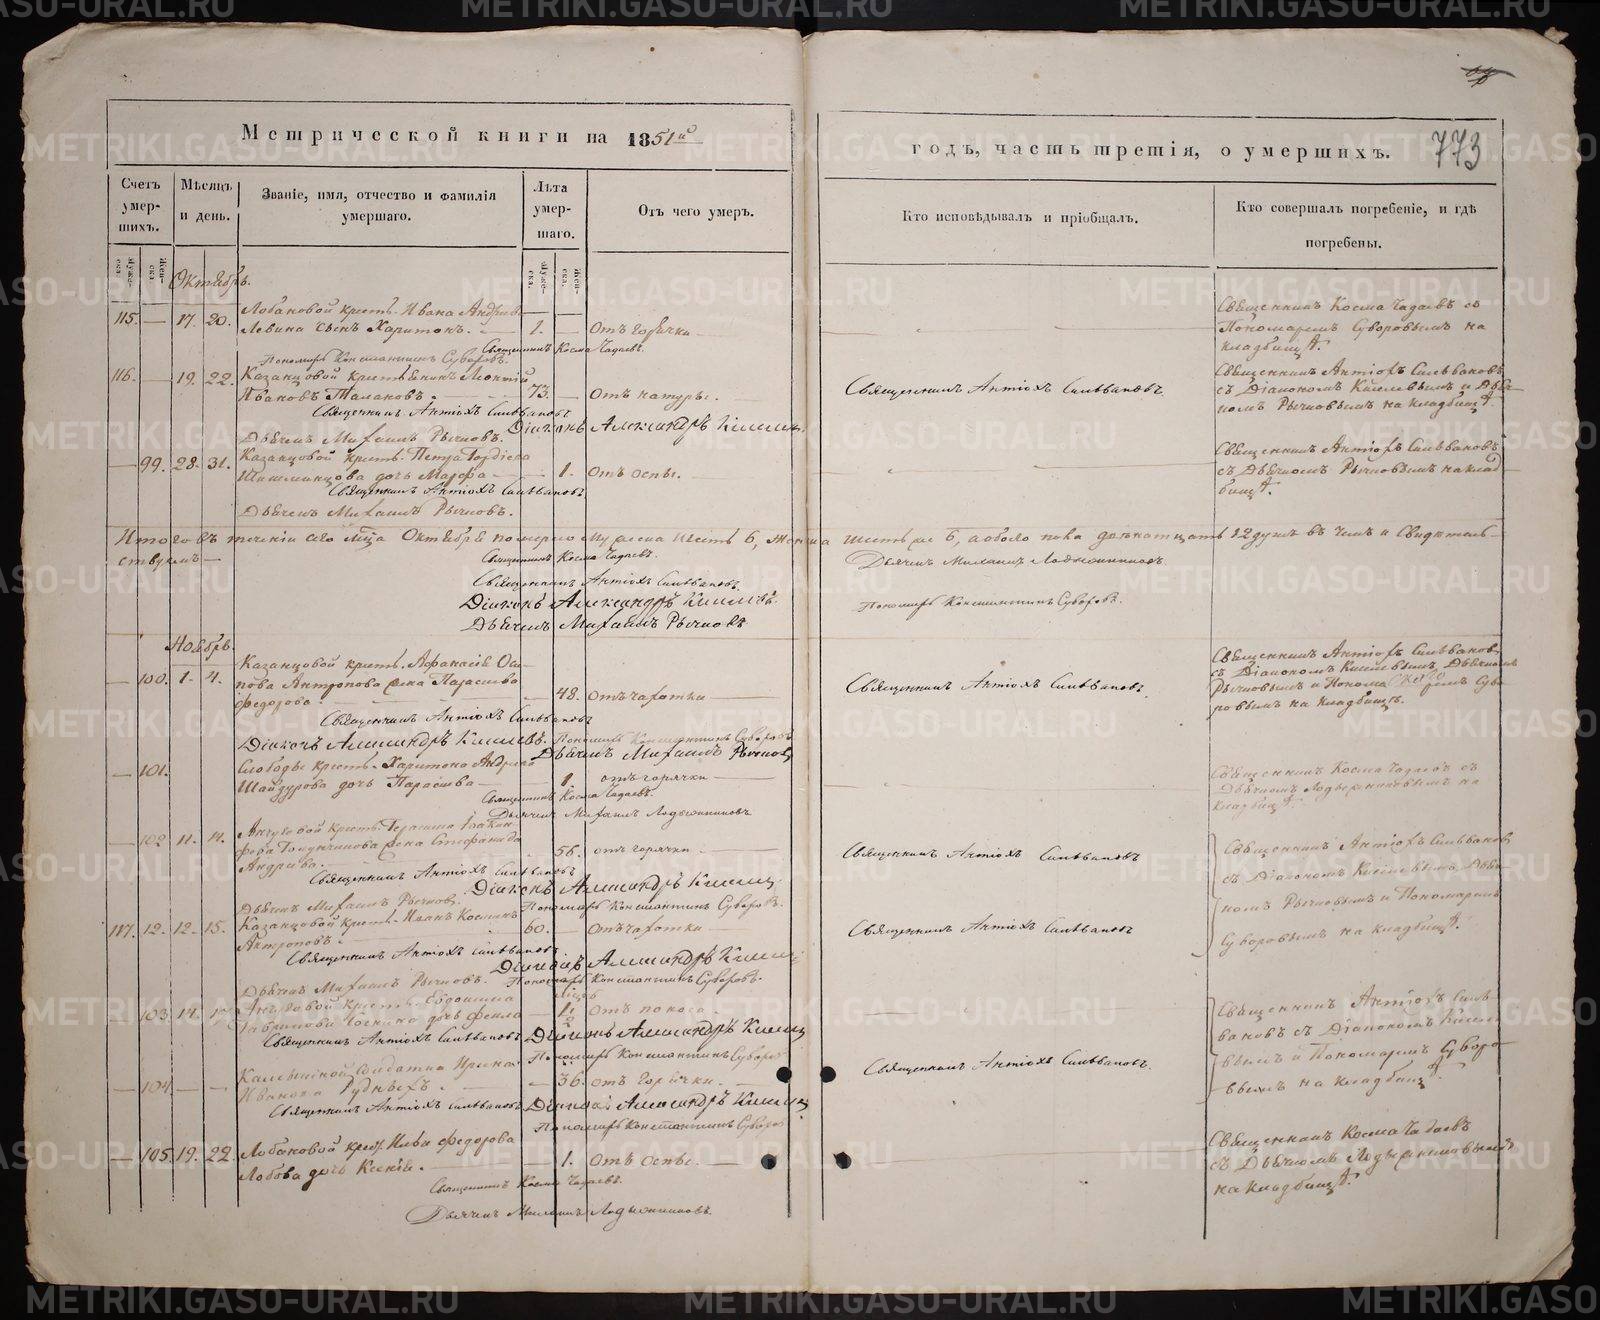 Метрической книги на 1851й
годъ, часть третія, о умершихъ. 773
Счетъ умер-шихъ.
Мѣсяцъ и день.
Званіе, имя, отчество и фамилія умершаго.
Лѣта умер-шаго.
Отъ чего умеръ.
Кто исповѣдывалъ и пріобщалъ.
Кто совершалъ погребеніе, и гдѣ погребены.
Октябрь.
115. — 17. 20. Лобановой крест. Ивана Андреева
Левина сынъ Харитонъ. — 1. — Отъ горячки
Священникъ Косма Чадаевъ съ
Пономаремъ Суворовымъ на
кладбищѣ.
Священникъ Косма Чадаевъ.
Пономарь Константинъ Суворовъ.
116. — 19. 22. Казанцовой крестьянинъ Леонтій
Ивановъ Талановъ. 73. — Отъ натуры.
Священникъ Антіохъ Сильвановъ.
Священникъ Антіохъ Сильвановъ
съ Діакономъ Киселевымъ и Дьяч-
комъ Рычковымъ на кладбищѣ.
Священникъ Антіохъ Сильвановъ
Діаконъ Александръ Киселев
Дьячекъ Михаилъ Рычковъ.
— 99. 28. 31. Казанцовой крест. Петра Гордѣева
дочь Марфа — 1. Отъ оспы.
Священникъ Антіохъ Сильвановъ
съ Дьячкомъ Рычковымъ на клад-
бищѣ.
Священникъ Антіохъ Сильвановъ
Дьячекъ Михаилъ Рычковъ.
Итого въ теченіи сего м-ца Октября померло мужеска шесть 6, женска шесть же 6, а обоего пола двенатцать 12 душъ въ чемъ и свидѣтель-
ствуемъ —
Священникъ Косма Чадаевъ.
Дьячекъ Михаилъ
Священникъ Антіохъ Сильвановъ.
Діаконъ Александръ Киселевъ.
Пономарь Константинъ Суворовъ.
Дьячекъ Михаилъ Рычковъ
Ноябрь.
— 100. 1. 4. Казанцовой крест. Афанасія Оси-
пова Антропова жена Парасковья
Федорова. — 48. Отъ чахотки
Священникъ Антіохъ Сильвановъ.
Священникъ Антіохъ Сильвановъ
съ Діакономъ Киселевымъ, Дьячкомъ
Рычковымъ и Пономаремъ Суво-
ровымъ на кладбищѣ.
Священникъ Антіохъ Сильвановъ
Діаконъ Александръ Киселевъ. Пономарь Константинъ Суворовъ
Дьячекъ Михаилъ Рычковъ
— 101. Слободы крест. Харитона Андреева
Шайдурова дочь Парасковья — 1. отъ горячки
Священникъ Косма Чадаевъ съ
Дьячкомъ на
кладбищѣ.
Священникъ Косма Чадаевъ.
Дьячекъ Михаилъ
— 102. 11. 14. крест.
жена Стефанида
Андреева. — 56. отъ горячки
Священникъ Антіохъ Сильвановъ
Священникъ Антіохъ Сильвановъ
съ Діакономъ Киселевымъ, Дьяч-
комъ Рычковымъ и Пономаремъ
Суворовымъ на кладбищѣ.
Священникъ Антіохъ Сильвановъ
Діаконъ Александръ Киселев
Дьячекъ Михаилъ Рычковъ.
Пономарь Константинъ Суворовъ.
117. 12. 12. 15. Казанцовой крест. Иванъ Косминъ
Антроповъ. 60. — Отъ чахотки
Священникъ Антіохъ Сильвановъ
Священникъ Антіохъ Сильвановъ
Діаконъ Александръ Киселев
Дьячекъ Михаилъ Рычковъ. Пономарь Константинъ Суворовъ.
— 103. 14. 17. крест. Евдокима
дочь Фекла — 1/2 Отъ поноса
Священникъ Антіохъ Силь-
вановъ съ Діакономъ Киселе-
вымъ и Пономаремъ Суворо-
вымъ на кладбищѣ.
Священникъ Антіохъ Сильвановъ Діаконъ Александръ Киселев
Пономарь Константинъ Суворов
— 104. — — солдатка Ирина
Иванова Рудныхъ. — 36. отъ Горячки.
Священникъ Антіохъ Сильвановъ.
Священникъ Антіохъ Сильвановъ Діаконъ Александръ Киселев
Пономарь Константинъ Суворов
— 105. 19. 22. Лобановой крест. Ильи Федорова
Лобова дочь Ксенія. — 1. Отъ Оспы.
Священникъ Косма Чадаевъ
съ Дьячкомъ
на кладбищѣ.
Священникъ Косма Чадаевъ.
Дьячекъ Михаилъ
METRIKI.GASO-URAL.RU